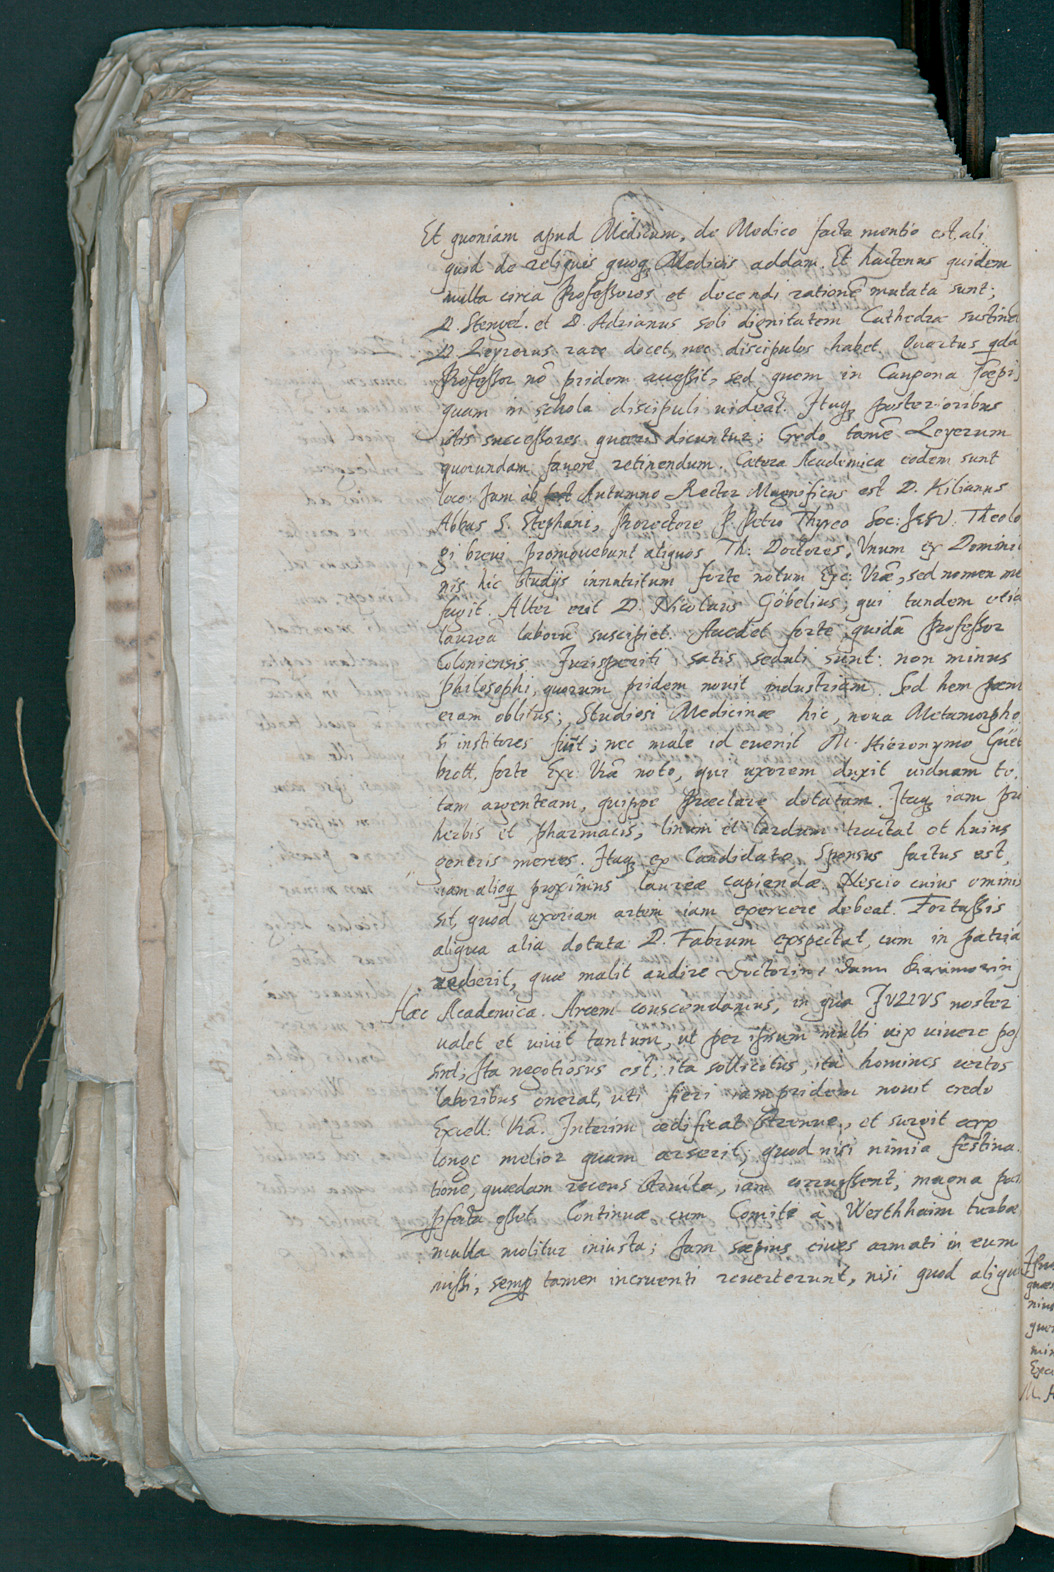 Et quoniam apud Medicum, de Medico facta mentio est, ali
quid de reliquis quoq; Medicis addam. Et hactenus quidem
nulla circa Professores et docendi rationē mutata sunt;
D. Stengel. et D. Adrianus soli dignitatem Cathedrae sustinēt
D. Leyrerus rare docet, nec discipulos habet. Quartus qdā
Professor nō pridem accessit, sed quem in Caupona saepi9
quam in schola discipuli uideāt. Itaq; posterioribus
istis successores quaeri dicuntur; Credo tamē Leyerum
quorundam fauore retinendum. Caetera Academica eodem sunt
loco. Iam ab Autumno Rector Magnificus est D. Kilianus
Abbas S. Stephani, Prorectore P. Petro Thyraeo Soc: JESV. Theolo
gi breui promouebunt aliquos Th: Doctores, Vnum ex Domini
nis hic studijs innutritum forte notum Exc: Vrae, sed nomen me
fugit. Alter erit D. Nicolaus Göbelius, qui tandem etiā
laureā laborū suscipiet. Accedet forte quidā Professor
Coloniensis. Jurisperiti satis seduli sunt: non minus
Philosophi, quorum pridem nouit industriam. Sed hem paene
eram oblitus; Studiosi Medicinae hic, noua Metamorpho
si institores fiūt; nec male id euenit M. Hieronymo
brett. forte Exc: Vrā noto, qui uxorem duxit uiduam
tam aruenteam, quippe praeclare dotatam. Itaq; iam pro
herbis et pharmacis, linum et lardum tractat et huius
generis merces. Itaq; ex Candidato Sponsus factus est,
iam alioq proximus laureae capiendae. Nescio cuius ominis
sit, quod uxoriam artem iam exercere debeat. Fortassis
aliqua alia dotata D. Fabrum exspectat, cum in patriā
redierit, quae malit audire Doctorin, dann Krämerin
Haec Academica. Arcem conscendamus, in qua JVLIVS noster
ualet et uiuit tantum, ut per ipsum multi uix uiuere pos
sint; Ita negotiosus est; ita sollicitus, ita homines certos
laboribus onerat, uti fieri iampridem nouit credo
Excell: Vrā. Interim aedificat strenue, et surgit arx
longe melior quam arserit; quod nisi nimia festina
tione, quaedam recens structa, iam corruissent, magna pars
pfecta esset. Continuae cum Comite à Werthhaim turbae
nulla molitur iniusta; Iam saepius ciues armati in eum
missi, semp tamen incruenti reuerterunt, nisi quod aliqu